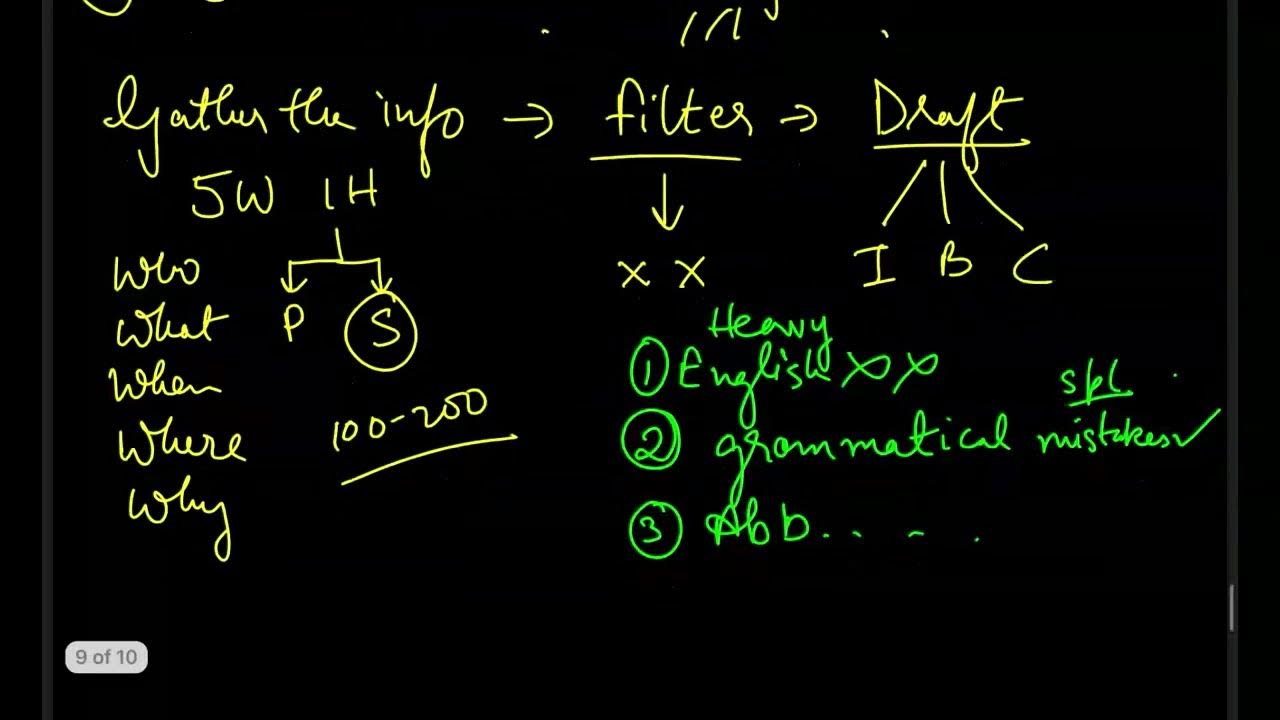 Gather the info → filter → Draft
5W 1H
Who
What P S
When
Where
Why
100-200
X X
I B C
Heavy
① English
spl
② grammatical mistakes ✓
③ Abb. . - .
9 of 10